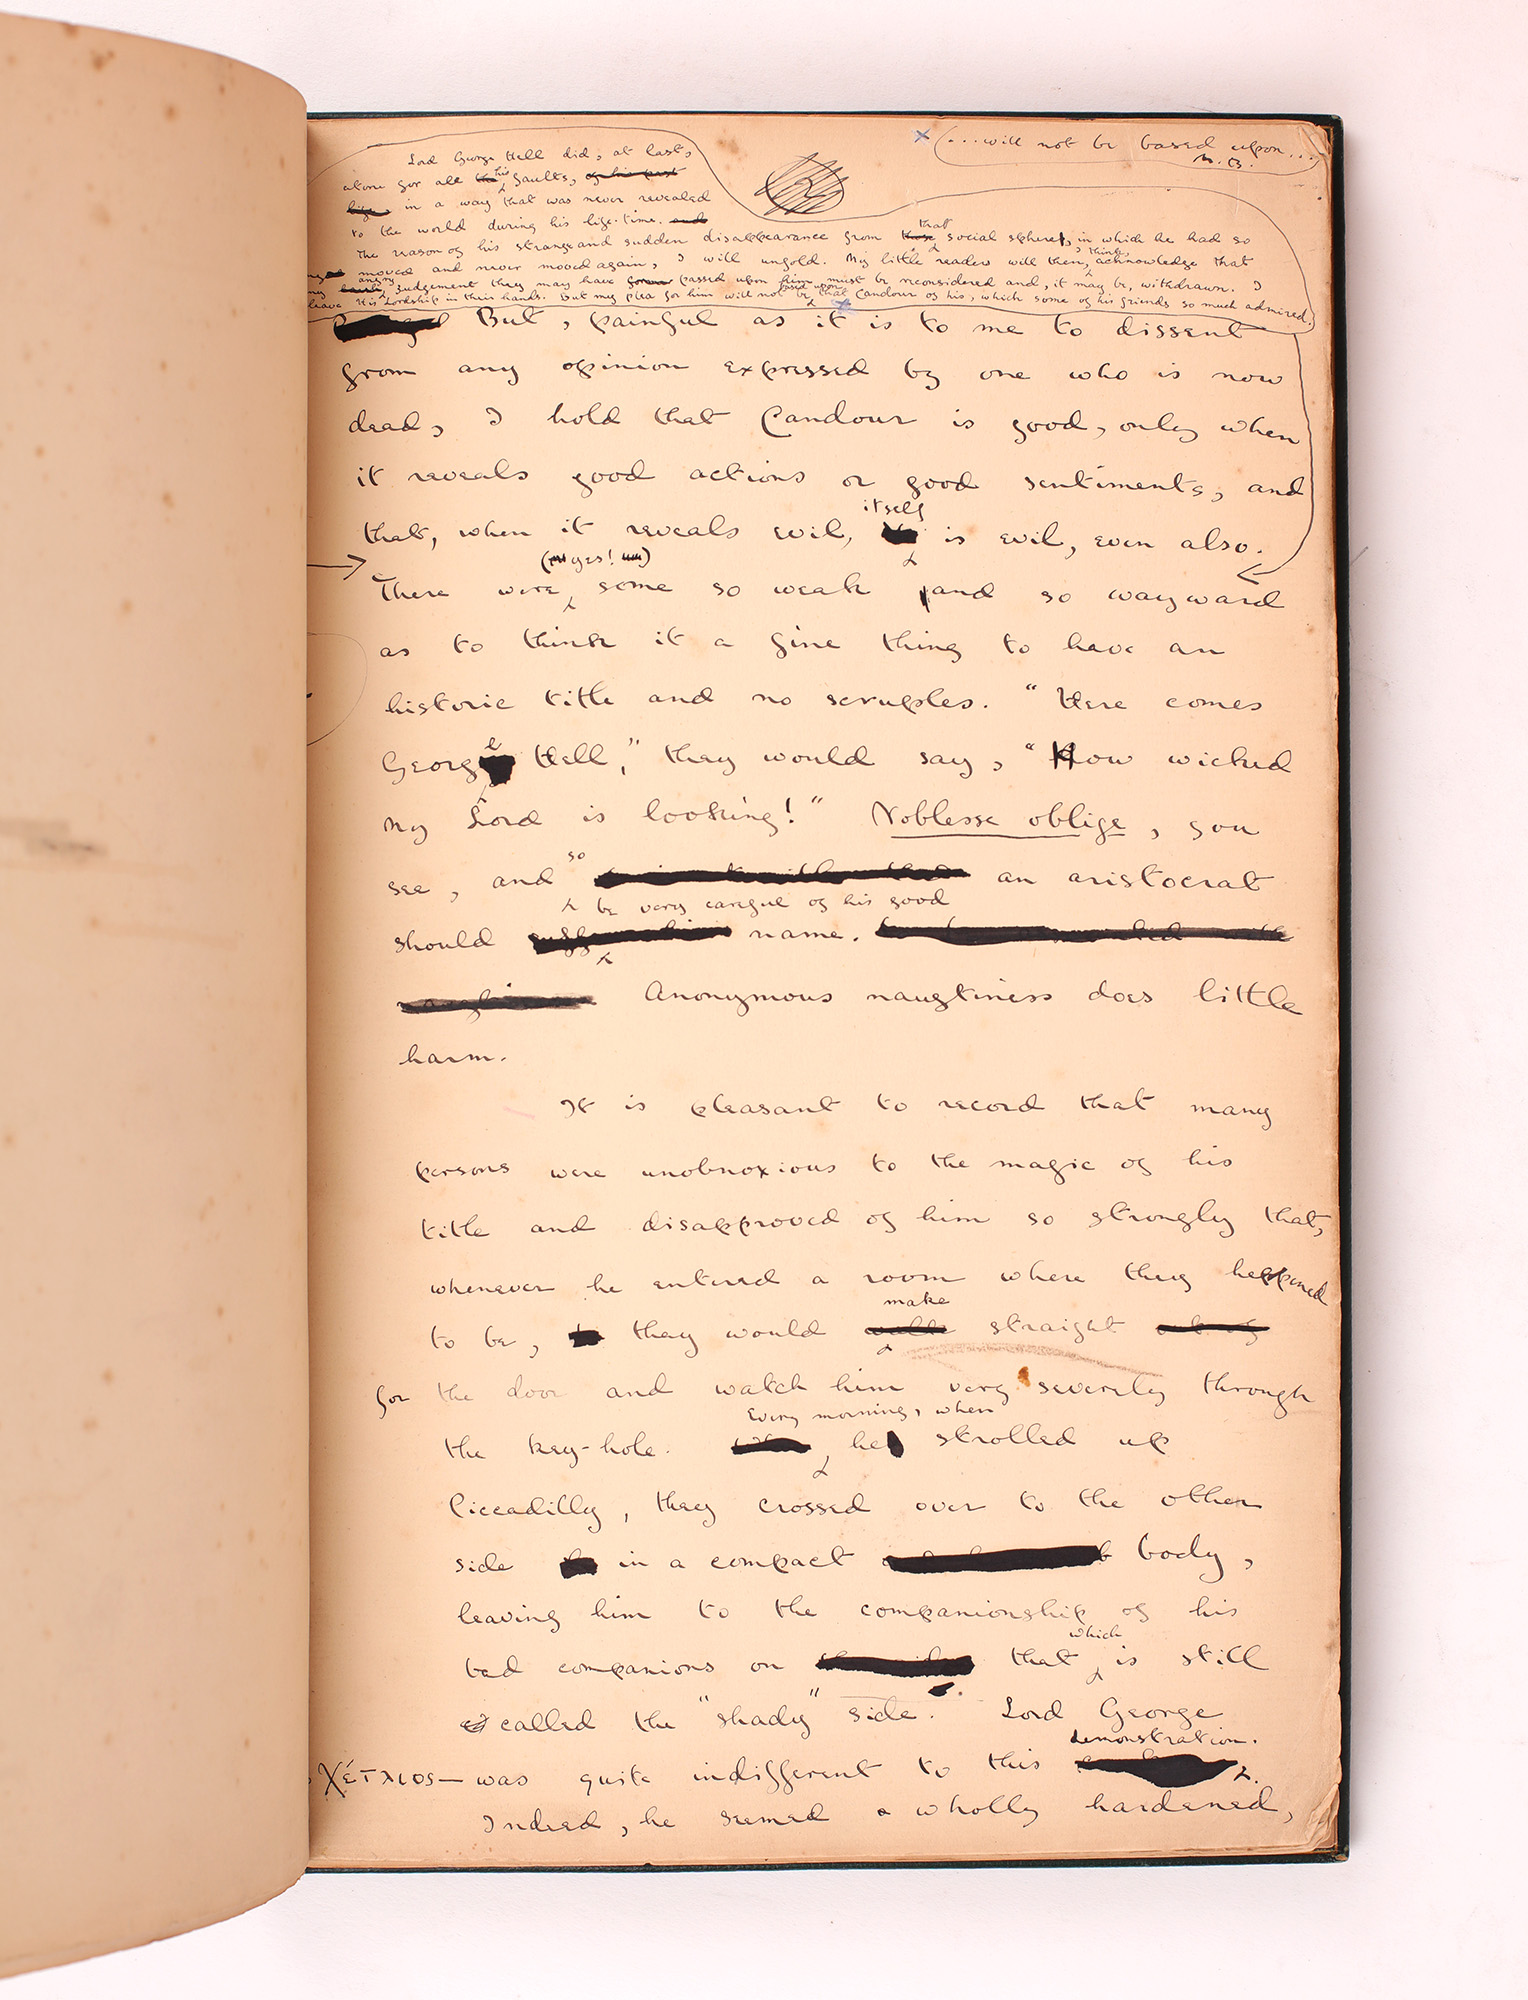 (...will not be based upon...)
M.B.
Lord George Hell did, at last,
atone for all his faults,
in a way that was never revealed
to the world during his life-time.
The reason of his strange and sudden disappearance from that social sphere, in which he had so
moved and never moved again, I will unfold. My little readers will then, I think, acknowledge that
any angry judgement they may have passed upon him must be reconsidered and, it may be, withdrawn. I
leave His Lordship in their hands. But my plea for him will not be based upon that Candour of his, which some of his friends so much admired.
But, painful as it is to me to dissent
from any opinion expressed by one who is now
dead, I hold that Candour is good, only when
it reveals good actions or good sentiments, and
that, when it reveals evil, itself is evil, even also.
There were (yes!) some so weak and so wayward
as to think it a fine thing to have an
historic title and no scruples. "Here comes
George Hell," they would say, "How wicked
my Lord is looking!" Noblesse oblige, you
see, and so an aristocrat
should be very careful of his good name.
Anonymous naugtiness does little
harm.
It is pleasant to record that many
persons were unobnoxious to the magic of his
title and disapproved of him so strongly that,
whenever he entered a room where they happened
to be, they would make straight
for the door and watch him very severely through
the key-hole. Every morning, when he strolled up
Piccadilly, they crossed over to the other
side in a compact body,
leaving him to the companionship of his
bad companions on that which is still
called the "shady" side. Lord George
—σχέτλιος— was quite indifferent to this demonstration.
Indeed, he seemed wholly hardened,